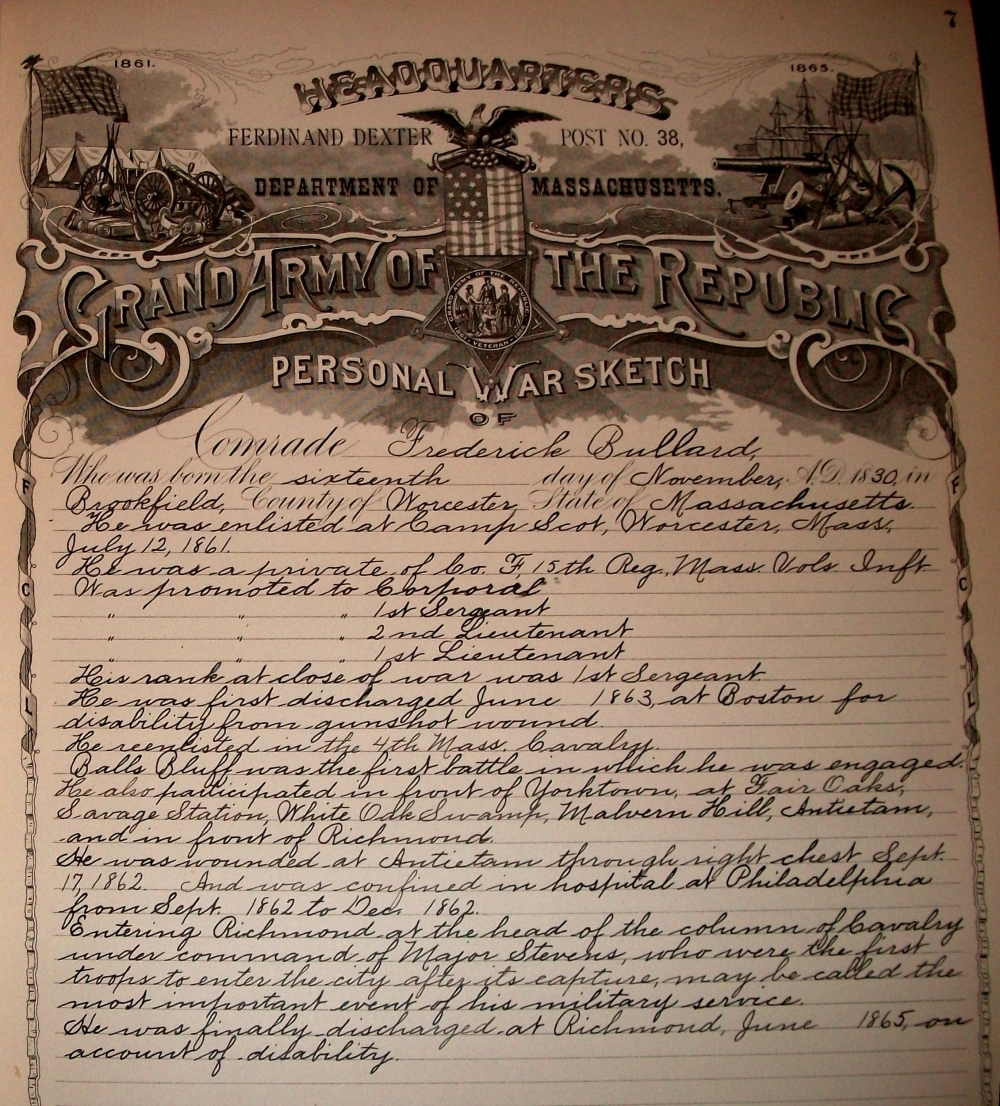 7
1861.
1865.
HEADQUARTERS
FERDINAND DEXTER POST NO. 38,
DEPARTMENT OF MASSACHUSETTS.
GRAND ARMY OF THE REPUBLIC
GRAND ARMY OF THE REPUBLIC
VETERAN
PERSONAL WAR SKETCH
OF
Comrade Frederick Bullard,
Who was born the sixteenth day of November, A.D. 1830, in
Brookfield, County of Worcester, State of Massachusetts.
He was enlisted at Camp Scot, Worcester, Mass,
July 12, 1861.
He was a private of Co. F 15th Reg. Mass. Vols Inft
Was promoted to Corporal
" " " 1st Sergeant
" " " 2nd Lieutenant
" " " 1st Lieutenant
His rank at close of war was 1st Sergeant.
He was first discharged June 1863, at Boston for
disability from gunshot wound.
He reenlisted in the 4th Mass. Cavalry.
Balls Bluff was the first battle in which he was engaged.
He also participated in front of Yorktown, at Fair Oaks,
Savage Station, White Oak Swamp, Malvern Hill, Antietam,
and in front of Richmond.
He was wounded at Antietam through right chest Sept.
17, 1862. And was confined in hospital at Philadelphia
from Sept. 1862 to Dec. 1862.
Entering Richmond at the head of the column of Cavalry
under command of Major Stevens, who were the first
troops to enter the city after its capture, may be called the
most important event of his military service.
He was finally discharged at Richmond, June 1865, on
account of disability.
F
C
L
F
C
L